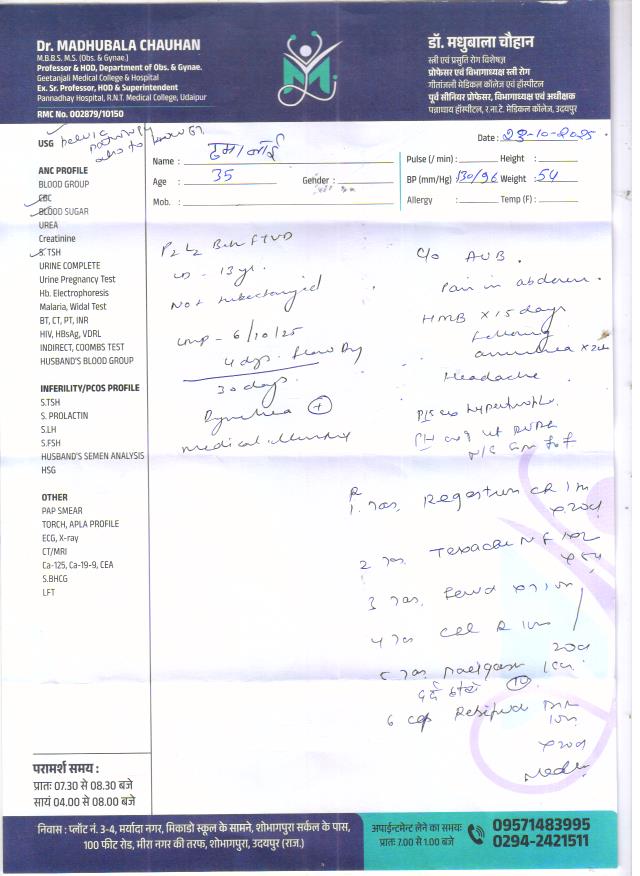 Dr. MADHUBALA CHAUHAN
M.B.B.S. M.S. (Obs. & Gynae.)
Professor & HOD, Department of Obs. & Gynae.
Geetanjali Medical College & Hospital
Ex. Sr. Professor, HOD & Superintendent
Pannadhay Hospital, R.N.T. Medical College, Udaipur
RMC No. 002879/10150
डॉ. मधुबाला चौहान
स्त्री एवं प्रसुति रोग विशेषज्ञ
प्रोफेसर एवं विभागाध्यक्ष स्त्री रोग
गीतांजली मेडिकल कॉलेज एवं हॉस्पीटल
पूर्व सीनियर प्रोफेसर, विभागाध्यक्ष एवं अधीक्षक
पन्नाधाय हॉस्पिटल, र.ना.टे. मेडिकल कॉलेज, उदयपुर
USG pelvic
Date : 23-10-2025
Name :
Age : 35 Gender :
Mob. :
Pulse (/ min) : Height :
BP (mm/Hg) 130/96 Weight : 54
Allergy : Temp (F) :
ANC PROFILE
BLOOD GROUP
CBC
BLOOD SUGAR
UREA
Creatinine
S. TSH
URINE COMPLETE
Urine Pregnancy Test
Hb. Electrophoresis
Malaria, Widal Test
BT, CT, PT, INR
HIV, HBsAg, VDRL
INDIRECT, COOMBS TEST
HUSBAND'S BLOOD GROUP
INFERILITY/PCOS PROFILE
S.TSH
S. PROLACTIN
S.LH
S.FSH
HUSBAND'S SEMEN ANALYSIS
HSG
OTHER
PAP SMEAR
TORCH, APLA PROFILE
ECG, X-ray
CT/MRI
Ca-125, Ca-19-9, CEA
S.BHCG
LFT
P2 L2 Both FTVD
LD - 13 yr.
Not
LMP - 6/10/25
4 dys. flow
30 days.
+
medical
C/o AUB.
Pain in abdomen.
HMB x 15 days
following
Headache
R
1. Tab. Regestron CR
2 Tab.
3 Tab.
4 Tab
20d
5 Tab.
दर्द होवे
6 Cap
x 20d
परामर्श समय :
प्रातः 07.30 से 08.30 बजे
सायं 04.00 से 08.00 बजे
निवास : प्लॉट नं. 3-4, मर्यादा नगर, मिकाडो स्कूल के सामने, शोभागपुरा सर्कल के पास,
100 फीट रोड, मीरा नगर की तरफ, शोभागपुरा, उदयपुर (राज.)
अपाईन्टमेन्ट लेने का समयः
प्रातः 7.00 से 1.00 बजे
09571483995
0294-2421511